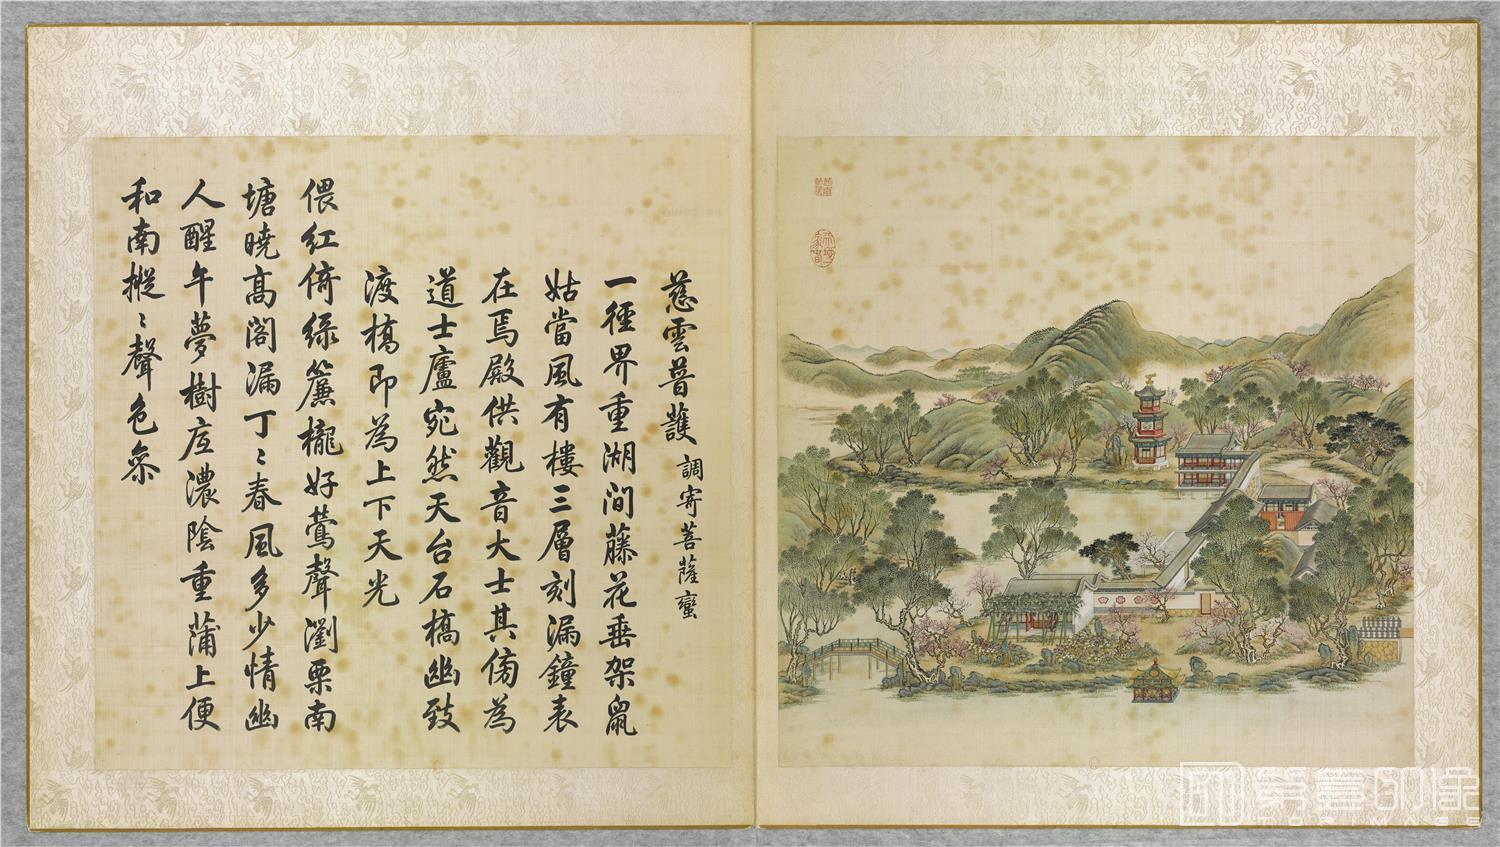 慈雲普護 調寄菩薩蠻
一徑界重湖間藤花垂架鼠
姑當風有樓三層刻漏鐘表
在焉殿供觀音大士其傍為
道士廬宛然天台石橋幽致
渡橋即為上下天光
偎紅倚綠簾櫳好鶯聲瀏栗南
塘曉高閣漏丁〻春風多少情幽
人醒午夢樹底濃陰重蒲上便
和南摐〻聲色參
第壹印像